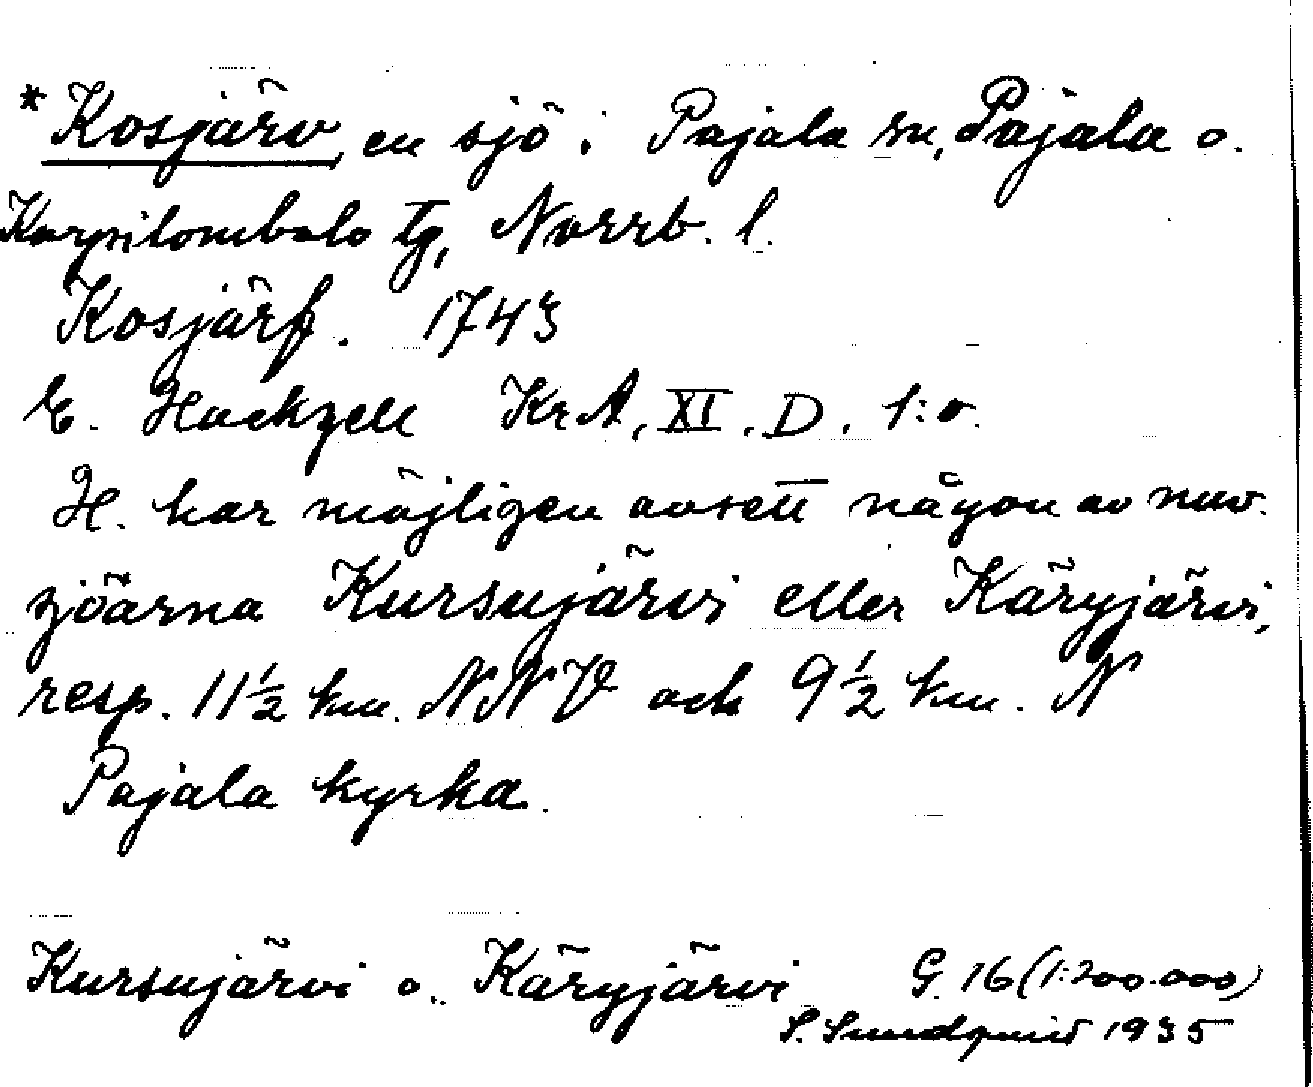 *Kosjärv, en sjö i Pajala sn, Pajala o.
Korpilombolo tg, Norrb. l.
Kosjärf. 1743
E. Hackzell KrA, XI. D. 1:o.
H. har möjligen avsett någon av nuv.
sjöarna Kursujärvi eller Käryjärvi,
resp. 11½ km. NNV och 9½ km. N
Pajala kyrka.
Kursujärvi o. Käryjärvi G. 16 (1:200.000)
S. Sundqvist 1935